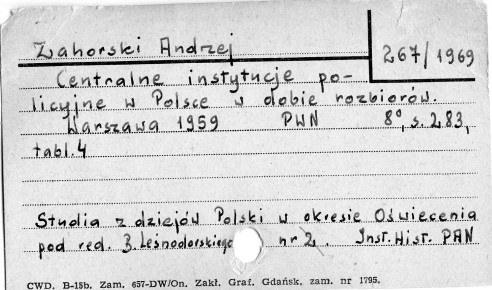 Zahorski Andrzej
267/1969
Centralne instytucje po-
licyjne w Polsce w dobie rozbiorów.
Warszawa 1959 PWN 8°, s. 283,
tabl. 4
Studia z dziejów Polski w okresie Oświecenia
pod red. B. Leśnodorskiego nr 2. Inst. Hist. PAN
CWD. B-15b. Zam. 657-DW/On. Zakł. Graf. Gdańsk, zam. nr 1795.